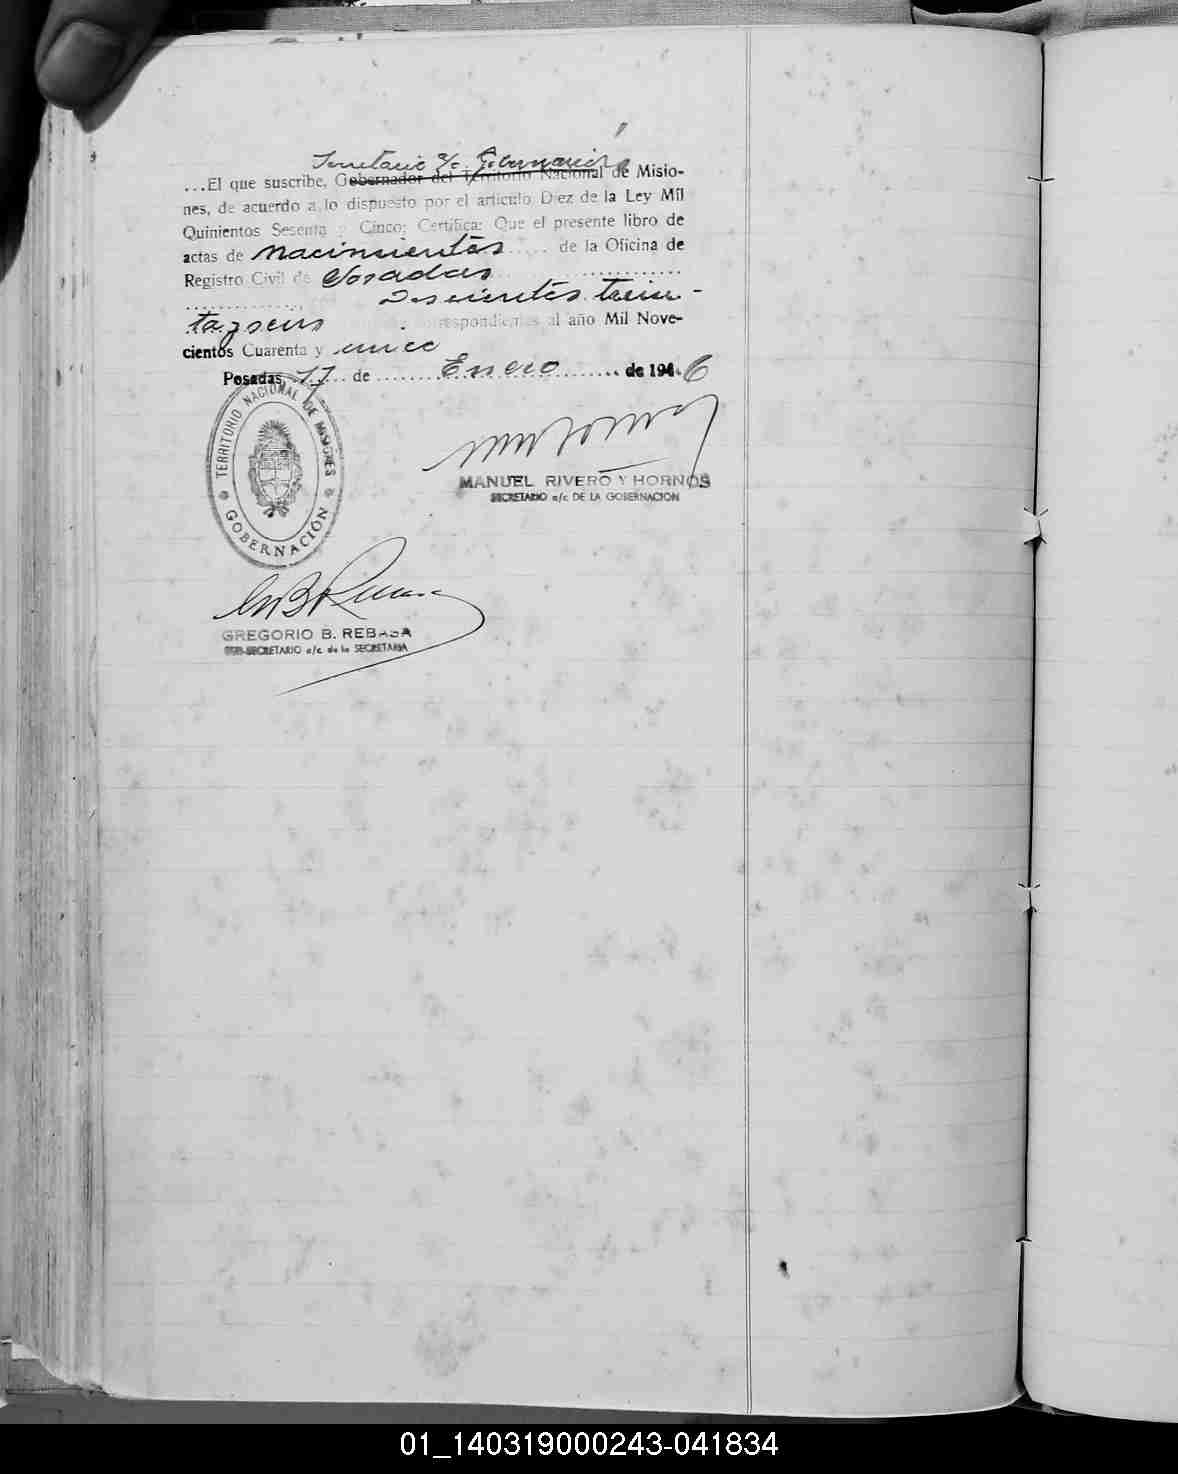 Secretario a/c. Gobernación
...El que suscribe, Gobernador del Territorio Nacional de Misio-
nes, de acuerdo a lo dispuesto por el artículo Diez de la Ley Mil
Quinientos Sesenta y Cinco; Certifica: Que el presente libro de
actas de Nacimientos ..... de la Oficina de
Registro Civil de Posadas ................
Doscientos trein-
ta y seis correspondientes al año Mil Nove-
cientos Cuarenta y cinco
Posadas, 17 de ........ Enero ........ de 1946
TERRITORIO NACIONAL DE MISIONES
GOBERNACIÓN
MANUEL RIVERO Y HORNOS
SECRETARIO a/c DE LA GOBERNACION
GREGORIO B. REBASA
SUB-SECRETARIO a/c de la SECRETARIA
01_140319000243-041834